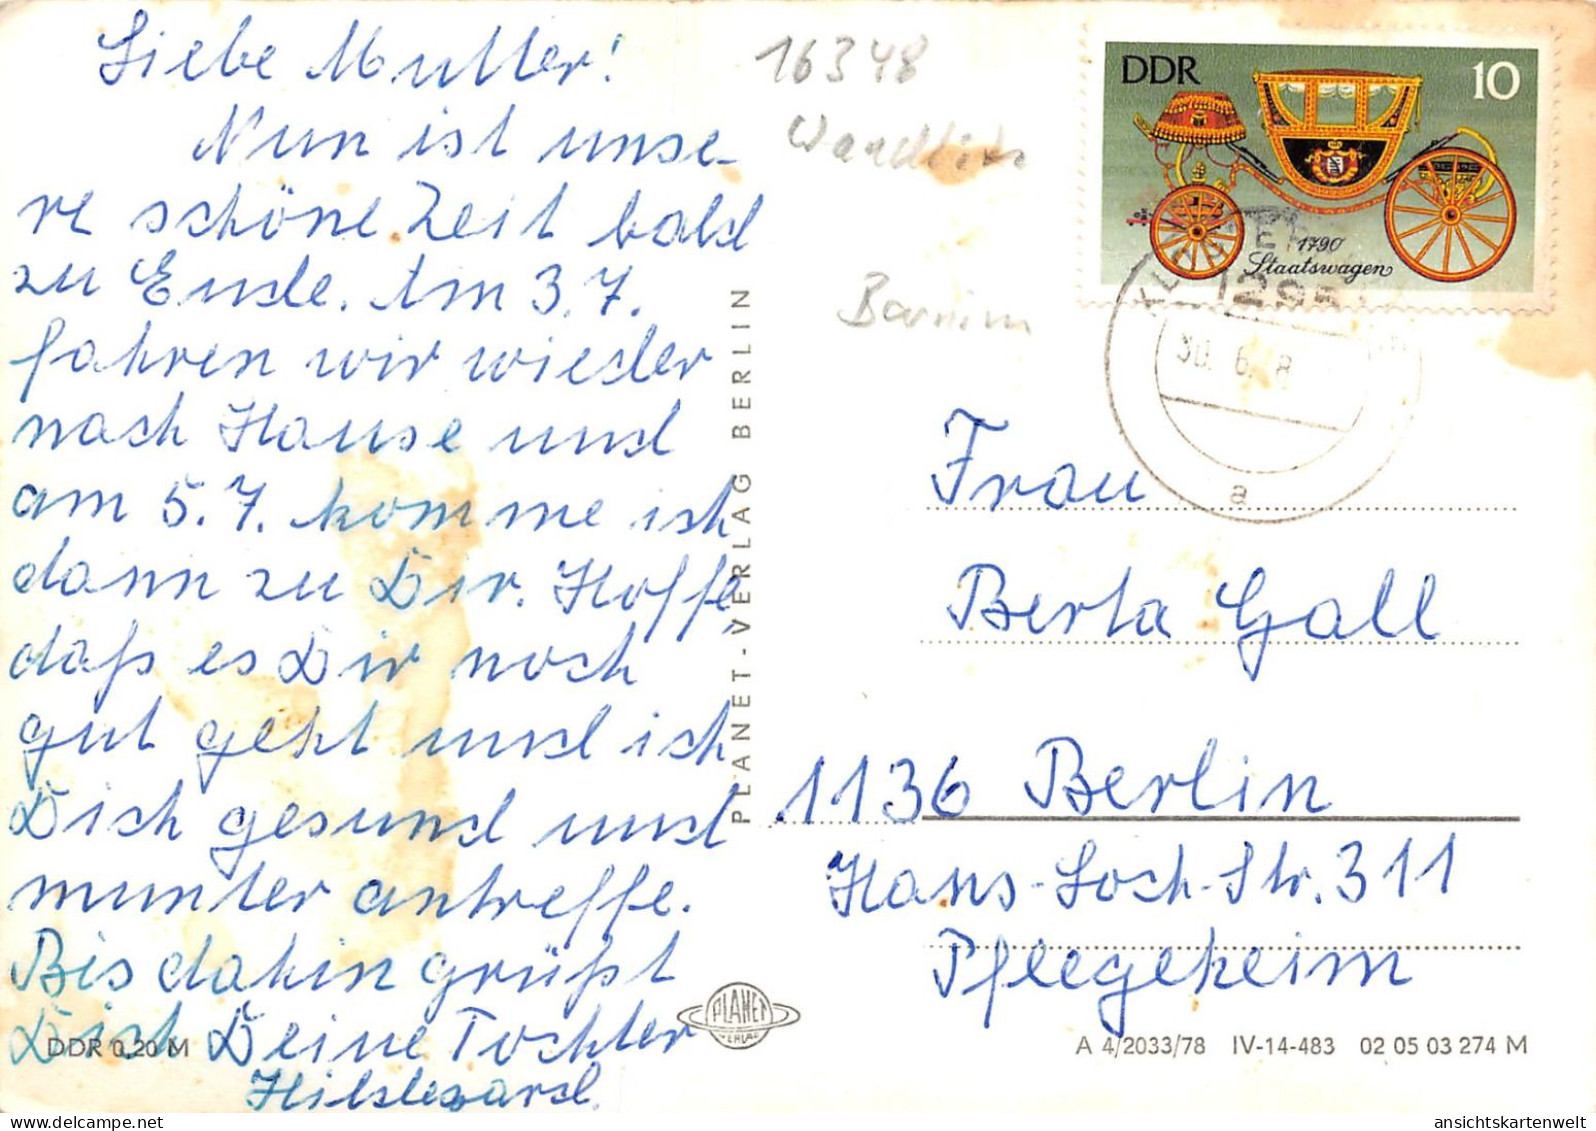 Liebe Mutter!
Nun ist unse-
re schöne Zeit bald
zu Ende. Am 3.7.
fahren wir wieder
nach Hause und
am 5.7. komme ich
dann zu Dir. Hoffe,
daß es Dir noch
gut geht und ich
Dich gesund und
munter antreffe.
Bis dahin grüßt
Dich Deine Tochter
Hildegard.
DDR 0,20 M
PLANET-VERLAG BERLIN
PLANET
VERLAG
16348
Wandlitz
Barnim
DDR 10
1790
Staatswagen
KLOSTER
30. 6.
a
Frau
Berta Gall
1136 Berlin
Hans-Loch-Str. 311
Pflegeheim
A 4/2033/78 IV-14-483 02 05 03 274 M
ansichtskartenwelt